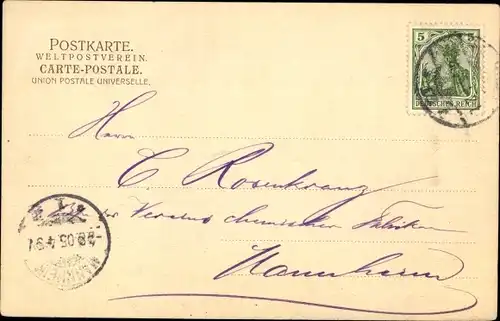 POSTKARTE.
WELTPOSTVEREIN.
CARTE-POSTALE.
UNION POSTALE UNIVERSELLE.
5 5
DEUTSCHES REICH
Herrn
C. Rosenkranz
der Vereins chemischer Fabriken
Mannheim
05. 4-5
MANNHEIM